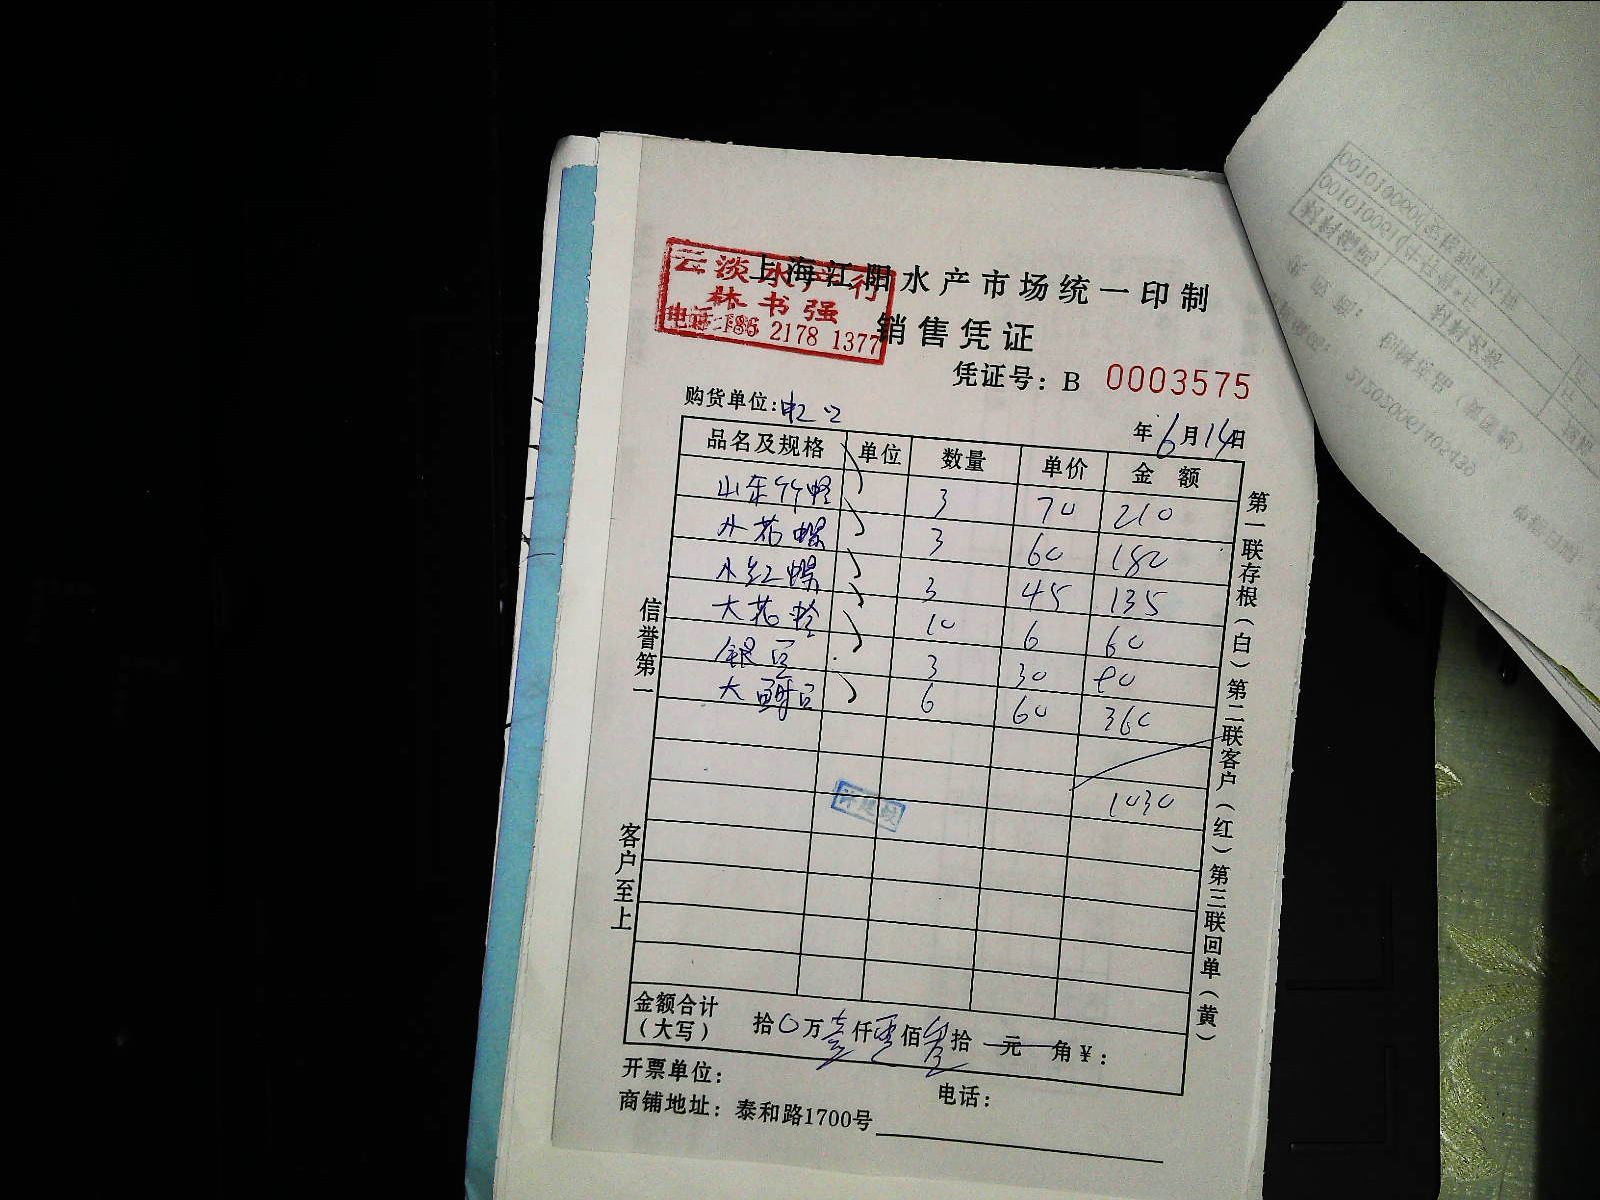 云淡水产行
林书强
电话:186 2178 1377
上海江阳水产市场统一印制
销售凭证
凭证号：B 0003575
购货单位:
年6月14日
品名及规格 单位 数量 单价 金额
山东竹蛏 3 70 210
小花螺 3 60 180
小红螺 3 45 135
大花蛤 10 6 60
银豆 3 30 90
大 6 60 360
1030
金额合计（大写） 拾0万壹仟零佰叁拾 元 角￥：
开票单位： 电话：
商铺地址：泰和路1700号
信誉第一
客户至上
第一联存根（白）第二联客户（红）第三联回单（黄）